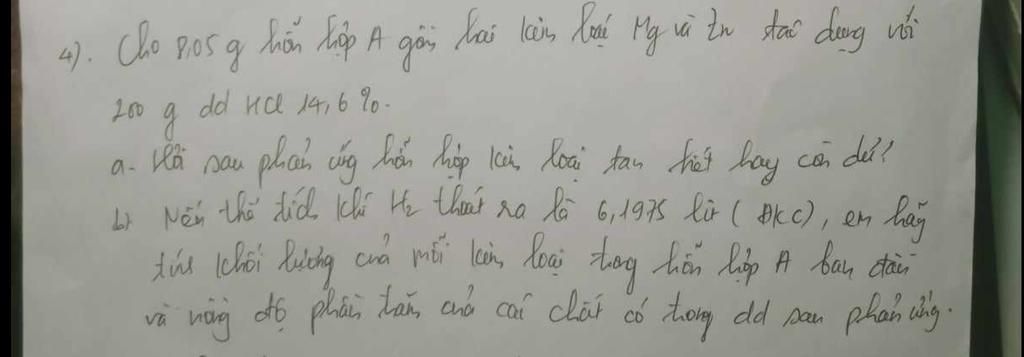 4). Cho 8,05 g hỗn hợp A gồm hai kim loại Mg và Zn tác dụng với
200 g dd HCl 14,6 %.
a. Hỏi sau phản ứng hỗn hợp kim loại tan hết hay còn dư?
b) Nếu thể tích khí H2 thoát ra là 6,1975 lít (ĐKC), em hãy
tính khối lượng của mỗi kim loại trong hỗn hợp A ban đầu
và nồng độ phần trăm của các chất có trong dd sau phản ứng.